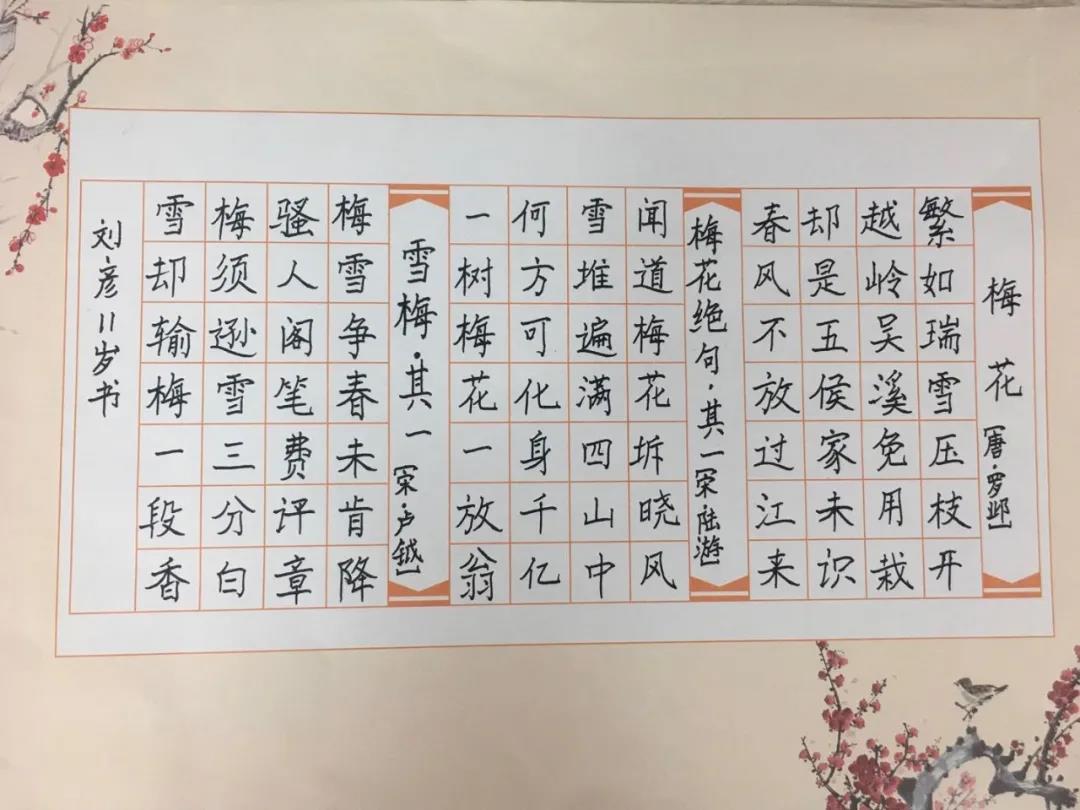 梅花【唐·罗邺】
繁如瑞雪压枝开
越岭吴溪免用栽
却是五侯家未识
春风不放过江来
梅花绝句·其一【宋·陆游】
闻道梅花坼晓风
雪堆遍满四山中
何方可化身千亿
一树梅花一放翁
雪梅·其一【宋·卢钺】
梅雪争春未肯降
骚人阁笔费评章
梅须逊雪三分白
雪却输梅一段香
刘彦11岁书